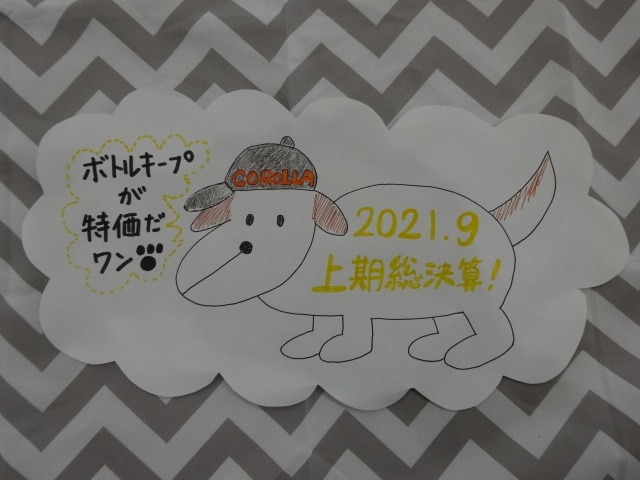 ボトルキープ
が
特価だ
ワン
COROLLA
2021.9
上期総決算!